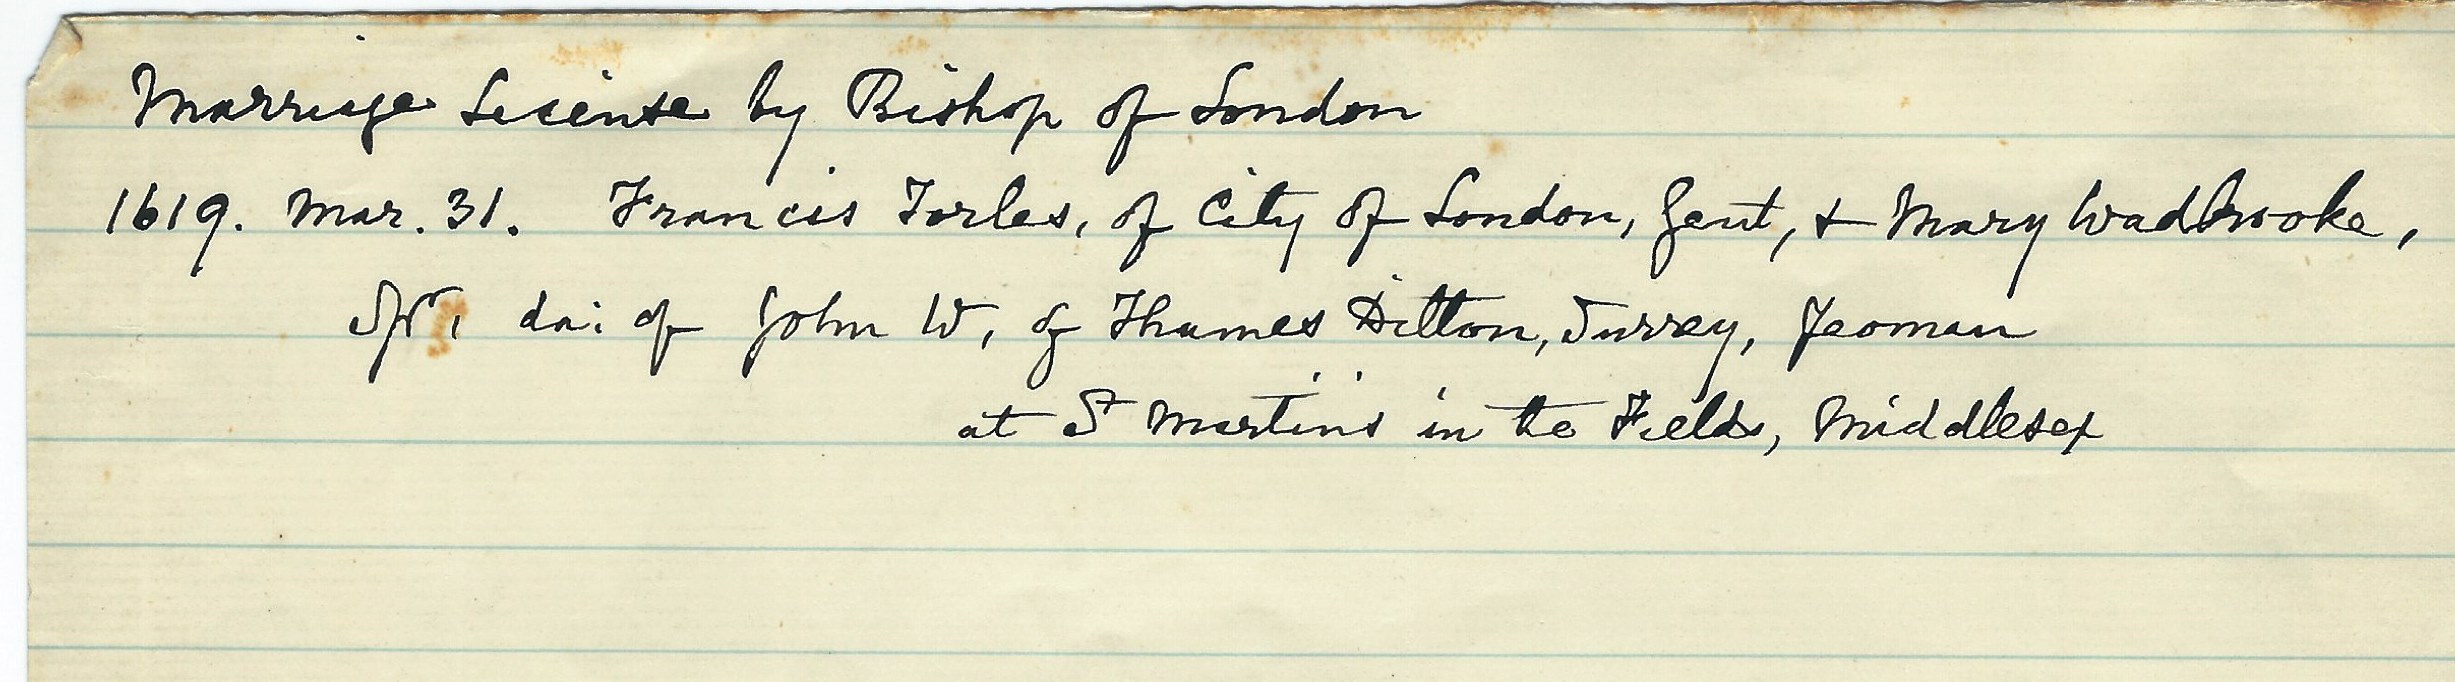 Marriage License by Bishop of London
1619. Mar. 31. Francis Torles, of City of London, Gent, & Mary Wadbrooke,
Spr, da: of John W, of Thames Ditton, Surrey, Yeoman
at St Martin's in the Fields, Middlesex